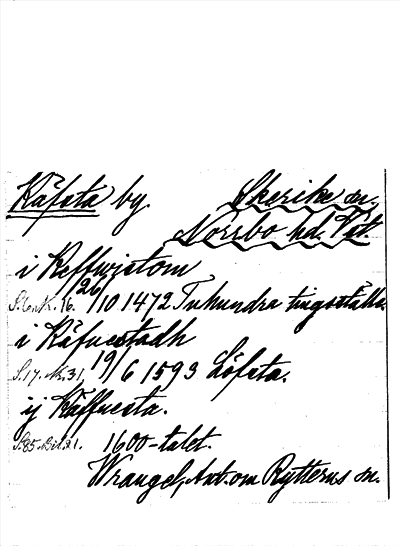 Käfsta by. Skerike sn.
Norrbo hd. Vstm.
i Keffwistom
S.6.N.16. 26/10 1472 Tuhundra tingsställe
i Käfuestadh
S.17.N.31. 19/6 1593 Löfsta.
ij Käffuesta.
S.85.Bil.21. 1600-talet.
Wrangel, Ant. om Rytterns sn.